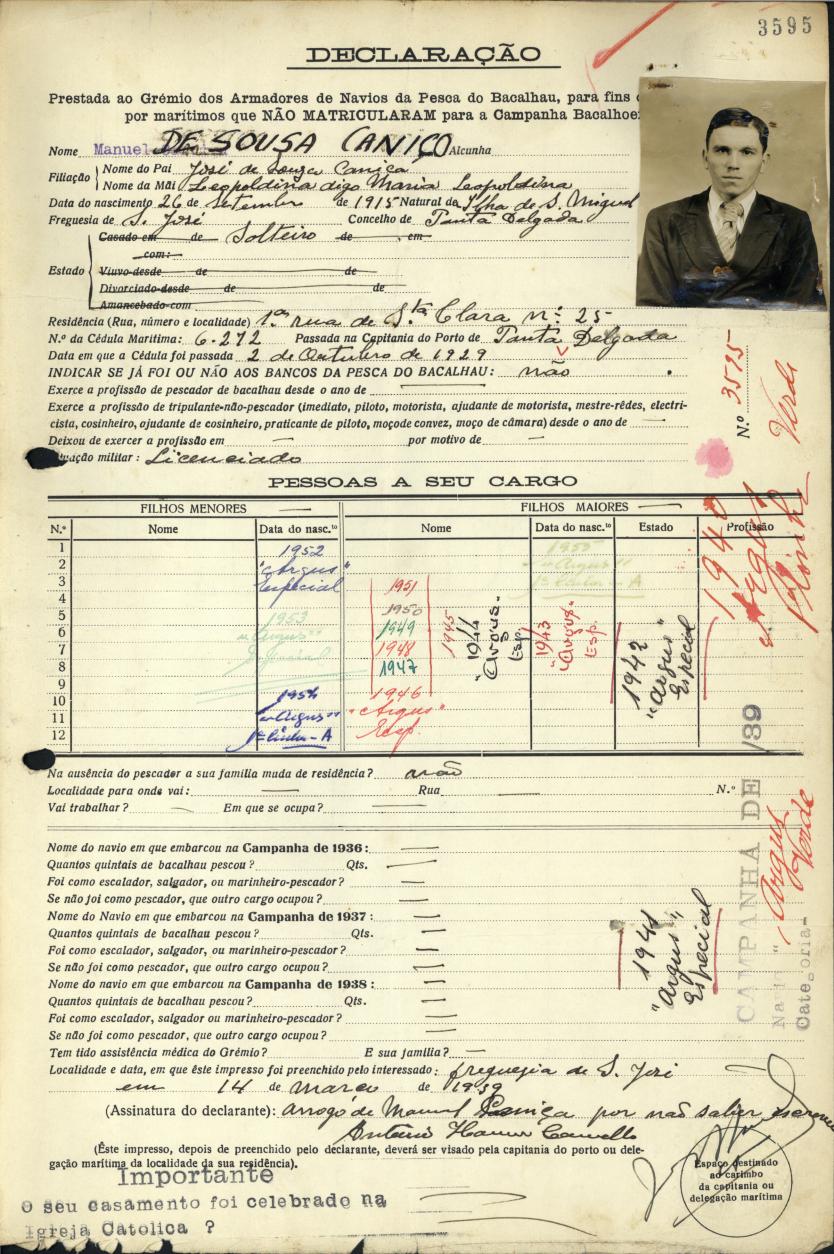 3595
DECLARAÇÃO
Prestada ao Grémio dos Armadores de Navios da Pesca do Bacalhau, para fins
por marítimos que NÃO MATRICULARAM para a Campanha Bacalhoei
Nome Manuel DE SOUSA CANIÇO Alcunha
Filiação Nome do Pai José de Souza Caniça
Nome da Mãi Leopoldina digo Maria Leopoldina
Data do nascimento 26 de setembro de 1915 Natural da Ilha de S. Miguel
Freguesia de S. José Concelho de Ponta Delgada
Casado em de Solteiro de em
com:
Estado Viuvo desde de de
Divorciado desde de de
Amancebado com
Residência (Rua, número e localidade) 1.ª rua de S.ta Clara n.º 25
N.º da Cédula Maritima: 6.272 Passada na Capitania do Porto de Ponta Delgada
Data em que a Cédula foi passada 2 de Outubro de 1929
INDICAR SE JÁ FOI OU NÃO AOS BANCOS DA PESCA DO BACALHAU: não
Exerce a profissão de pescador de bacalhau desde o ano de
Exerce a profissão de tripulante-não-pescador (imediato, piloto, motorista, ajudante de motorista, mestre-rêdes, electri-
cista, cosinheiro, ajudante de cosinheiro, praticante de piloto, moço de convez, moço de câmara) desde o ano de
Deixou de exercer a profissão em por motivo de
uação militar: Licenciado
N.º 3595
Verde
PESSOAS A SEU CARGO
FILHOS MENORES FILHOS MAIORES
N.º Nome Data do nasc.to Nome Data do nasc.to Estado Profissão
1
2
3
4
5
6
7
8
9
10
11
12
1952
"Argus"
Especial
1953
"Argus"
Especial
1954
"Argus"
1ª Linha - A
1951
1950
1949
1948
1947
1946
"Argus"
Esp.
1945
1944
"Argus"
Esp.
1955
"Argus"
1ª Linha - A
1943
"Argus"
Esp.
1942
"Argus"
Especial
1940
Argus
Na ausência do pescador a sua família muda de residência? não
Localidade para onde vai: Rua N.º
Vai trabalhar? Em que se ocupa?
Nome do navio em que embarcou na Campanha de 1936:
Quantos quintais de bacalhau pescou? Qts.
Foi como escalador, salgador, ou marinheiro-pescador?
Se não foi como pescador, que outro cargo ocupou?
Nome do Navio em que embarcou na Campanha de 1937:
Quantos quintais de bacalhau pescou? Qts.
Foi como escalador, salgador, ou marinheiro-pescador?
Se não foi como pescador, que outro cargo ocupou?
Nome do navio em que embarcou na Campanha de 1938:
Quantos quintais de bacalhau pescou? Qts.
Foi como escalador, salgador ou marinheiro-pescador?
Se não foi como pescador, que outro cargo ocupou?
Tem tido assistência médica do Grémio? E sua família?
1941
"Argus"
Especial
CAMPANHA DE /39
Navio "Argus
Categoria- Verde
Localidade e data, em que êste impresso foi preenchido pelo interessado: freguezia de S. José
em 14 de março de 1939
(Assinatura do declarante): arrogo de Manuel Caniça por não saber escrever
(Êste impresso, depois de preenchido pelo declarante, deverá ser visado pela capitania do porto ou dele-
gação marítima da localidade da sua residência).
Espaço destinado
ao carimbo
da capitania ou
delegação marítima
Importante
O seu casamento foi celebrado na
Igreja Catolica ?